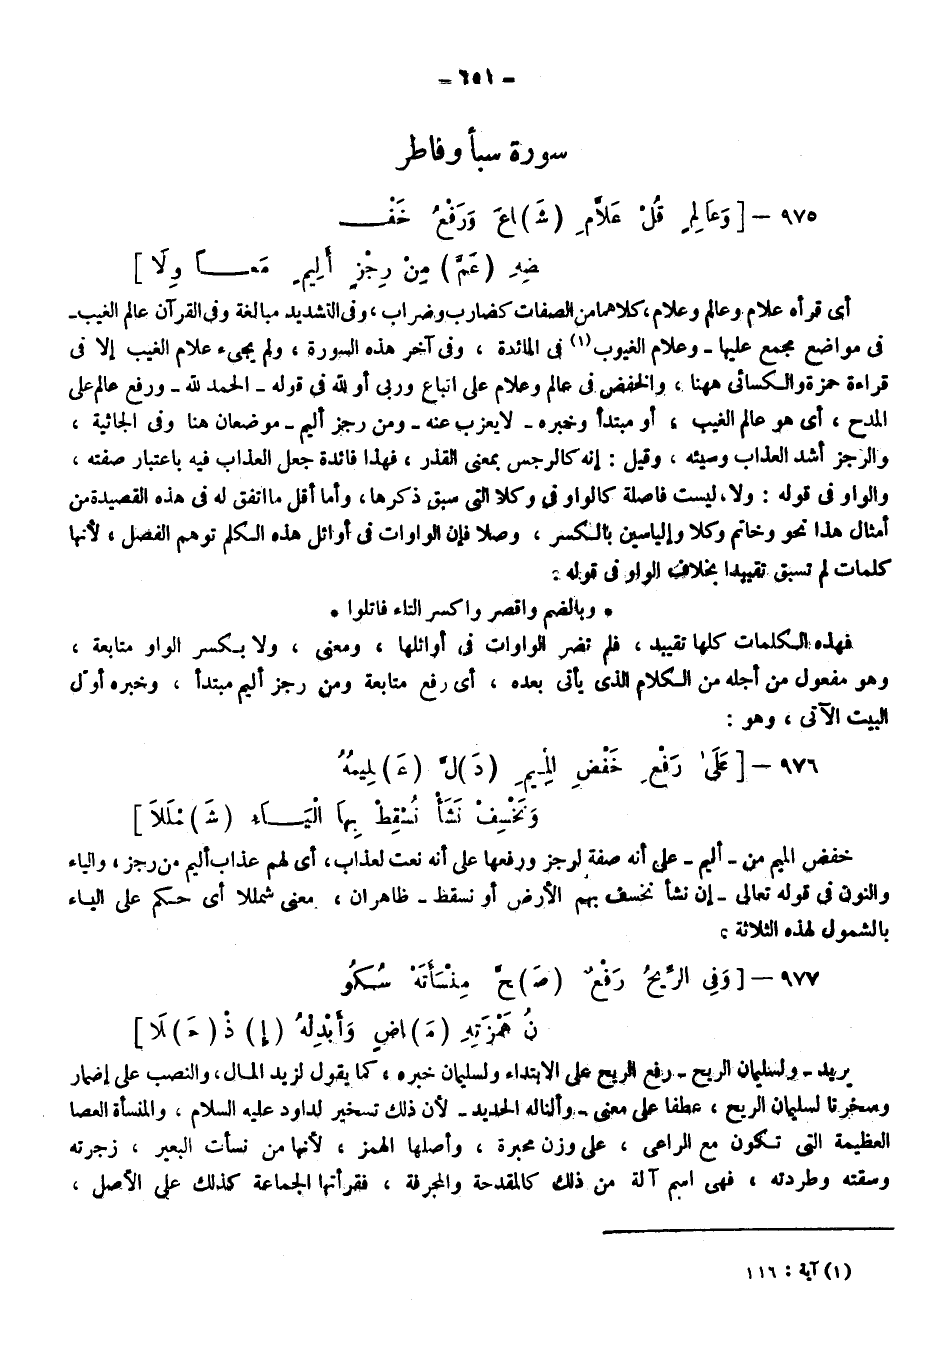 – ٦٥١ –
سورة سبأ وفاطر
٩٧٥ – [وَعَالِمِ قُلْ عَلاَّمِ (شَ)اعَ وَرَفْعُ خَفْـ
ضِهِ (عَمَّ) مِنْ رِجْزٍ أَلِيمٍ مَعـــاً وِلَا]
أى قرأه علام وعالم وعلام، كلاهما من الصفات كضارب وضراب ، وفى التشديد مبالغة وفى القرآن عالم الغيب ـ
فى مواضع مجمع عليها ـ وعلام الغيوب(١) فى المائدة ، وفى آخر هذه السورة ، ولم يجىء علام الغيب إلا فى
قراءة حمزة والكسائى ههنا ، والخفض فى عالم وعلام على اتباع وربى أو لله فى قوله ـ الحمد لله ـ ورفع عالم على
المدح ، أى هو عالم الغيب ، أو مبتدأ وخبره ـ لايعزب عنه ـ ومن رجز أليم ـ موضعان هنا وفى الجاثية ،
والرجز أشد العذاب وسيئه ، وقيل : إنه كالرجس بمعنى القذر ، فهذا فائدة جعل العذاب فيه باعتبار صفته ،
والواو فى قوله : ولا، ليست فاصلة كالواو فى وكلا التى سبق ذكرها ، وأما أقل ما اتفق له فى هذه القصيدة من
أمثال هذا نحو وخاتم وكلا وإلياسين بالكسر ، وصلا فإن الواوات فى أوائل هذه الكلم توهم الفصل ، لأنها
كلمات لم تسبق تقييدا بخلاف الواو فى قوله :
* وبالضم واقصر واكسر التاء قاتلوا *
فهذه الكلمات كلها تقييد ، فلم تضر الواوات فى أوائلها ، ومعنى ، ولا بكسر الواو متابعة ،
وهو مفعول من أجله من الكلام الذى يأتى بعده ، أى رفع متابعة ومن رجز أليم مبتدأ ، وخبره أول
البيت الآتى ، وهو :
٩٧٦ – [عَلَى رَفْعِ خَفْضِ الْمِيمِ (دَ)لَّ (عَ)لِيمُهُ
وَنَخْسِفْ نَشَأْ نُسْقِطْ بِهَا الْيَـــاءُ (شَ)مْلَلاَ]
خفض الميم من ـ أليم ـ على أنه صفة لرجز ورفعها على أنه نعت لعذاب، أى لهم عذاب أليم من رجز ، والياء
والنون فى قوله تعالى ـ إن نشأ نخسف بهم الأرض أو نسقط ـ ظاهران ، معنى شمللا أى حكم على الياء
بالشمول لهذه الثلاثة :
٩٧٧ – [وَفِى الرِّيحُ رَفْعٌ (صَ)حَّ مِنْسَأَتَهْ سُكُو
نُ هَمْزَتِهِ (مَ)اضٍ وَأَبْدِلْهُ (إِ) ذْ (حَ)لَا]
يريد ـ ولسليمان الريح ـ رفع الريح على الابتداء ولسليمان خبره ، كما يقول لزيد المال، والنصب على إضمار
وسخرنا لسليمان الريح ، عطفا على معنى ـ وألناله الحديد ـ لأن ذلك تسخير لداود عليه السلام ، والمنسأة العصا
العظيمة التى تكون مع الراعى ، على وزن محبرة ، وأصلها الهمز ، لأنها من نسأت البعير ، زجرته
وسقته وطردته ، فهى اسم آلة من ذلك كالمقدحة والمجرفة ، فقرأتها الجماعة كذلك على الأصل ،
(١) آية : ١١٦